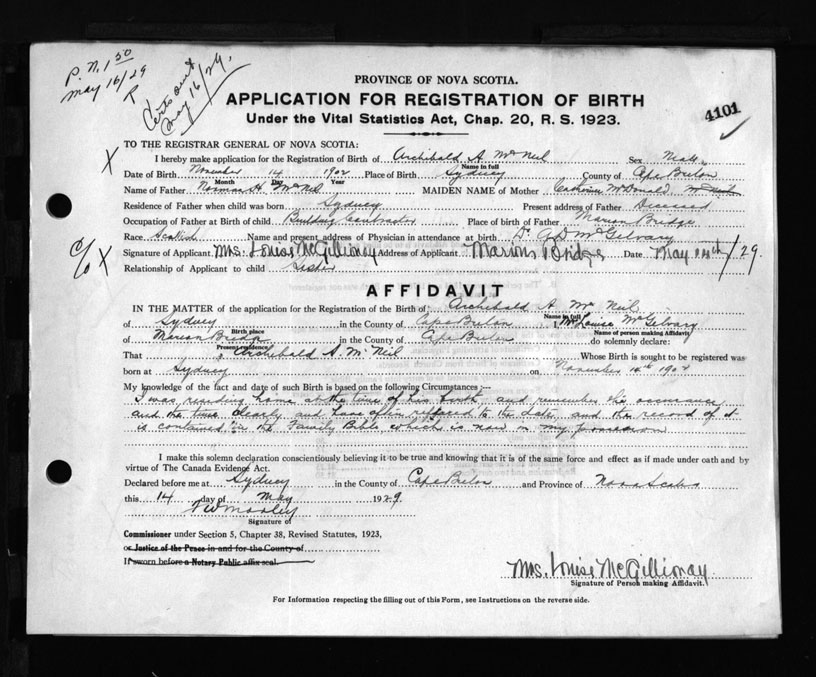 P.N. 1 50
May 16/29
R
Certs out
May 16/29.
PROVINCE OF NOVA SCOTIA.
APPLICATION FOR REGISTRATION OF BIRTH
Under the Vital Statistics Act, Chap. 20, R. S. 1923.
4101
TO THE REGISTRAR GENERAL OF NOVA SCOTIA:
X I hereby make application for the Registration of Birth of Archibald A McNeil Sex Male
Name in full
Date of Birth November 14 1902 Place of Birth Sydney County of Cape Breton
Month Day Year
Name of Father Norman H. McNeil MAIDEN NAME of Mother Catherine McDonald
Residence of Father when child was born Sydney Present address of Father Deceased
Occupation of Father at Birth of child Building Contractor Place of birth of Father Marion Bridge
Race Scotish Name and present address of Physician in attendance at birth Dr. A D McGelvary
c/o X Signature of Applicant Mrs. Louise McGillivray Address of Applicant Marion Bridge Date May 14th/29.
Relationship of Applicant to child Sister
AFFIDAVIT
IN THE MATTER of the application for the Registration of the Birth of Archibald A McNeil
Name in full
of Sydney in the County of Cape Breton I, Mrs Louise McGelvary
Birth place Name of person making Affidavit
of Marion Bridge in the County of Cape Breton do solemnly declare:
Present residence
That Archibald A. McNeil Whose Birth is sought to be registered was
born at Sydney on November 14th 1902
My knowledge of the fact and date of such Birth is based on the following Circumstances:—
I was residing home at the time of his birth and remember the occurance
and the time clearly and have often refered to the date and the record of it
is contained in the Family Bible which is now in my possession
I make this solemn declaration conscientiously believing it to be true and knowing that it is of the same force and effect as if made under oath and by
virtue of The Canada Evidence Act.
Declared before me at Sydney in the County of Cape Breton and Province of Nova Scotia
this 14 day of May 1929
Signature of
Commissioner under Section 5, Chapter 38, Revised Statutes, 1923,
or Justice of the Peace in and for the County of
If sworn before a Notary Public affix seal.
Mrs. Louise McGillivray
Signature of Person making Affidavit.
For Information respecting the filling out of this Form, see Instructions on the reverse side.